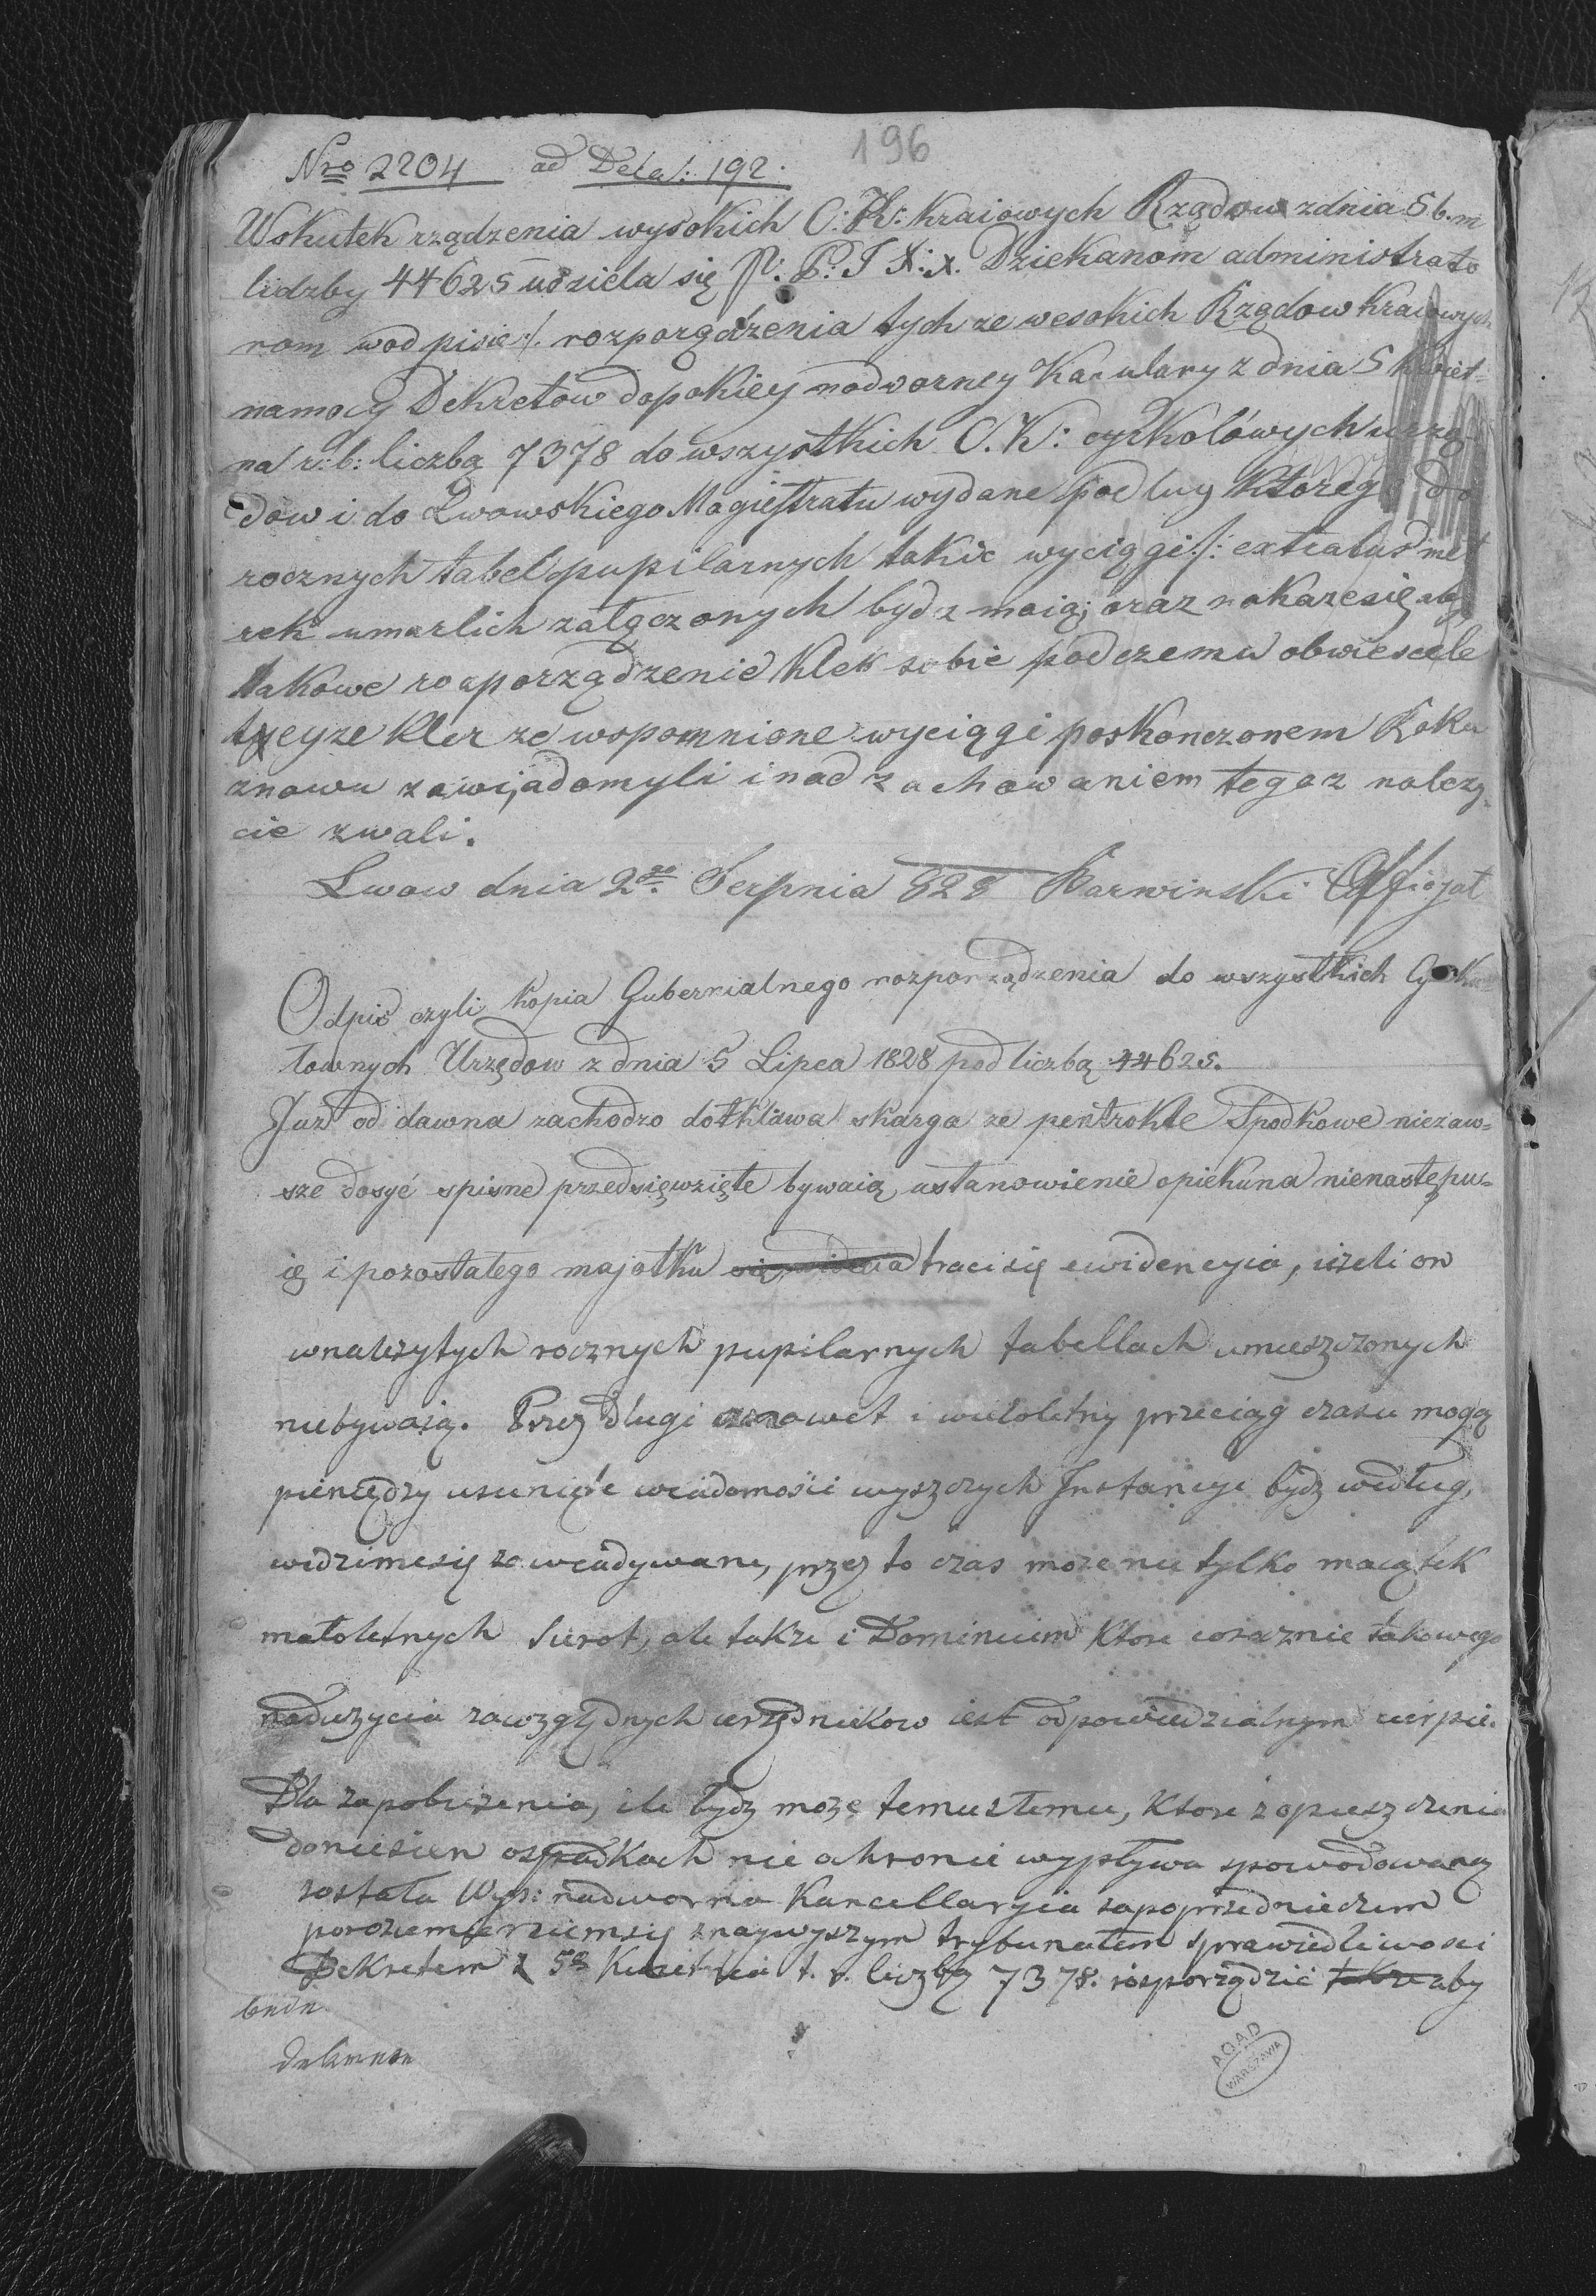 196
Nro 2204 ad Dela: 192.
Wskutek rządzenia wysokich C: K: kraiowych Rządow z dnia 5 b. m
lidzby 44625 udziela się P: P: J X: x. Dziekanom administrato
rom wodpisie ./. rozporządzenia tych ze wesokich Rządow kraiowych
namocy Dekretow dopokiey nadworney Kaculary z dnia 5 kwiet-
na r: b: liczbą 7378 do wszystkich C. K: cyrkolówych urzę
dow i do Lwowskiego Magiestratu wydane podlug którego do
rocznych tabel pupilarnych takie wyciągi /: extratus met
rek umarlich załączonych bydz maią; oraz nakaze się aby
takowe rozporządzenie Klek sobie podczemu obwiescele
tyeyze Kler ze wspomnione wyciągi poskonczonem Roku
znowu zawiadomyli i nad zachowaniem tegoz nalezy
cie zwali.
Lwow dnia 2go Serpnia 828 Barwinski Officjał
Odpis czyli kopia Gubernialnego rozporządzenia do wszystkich Cyrku-
łownych Urzędow z dnia 5 Lipca 1828 pod liczbą 44625.
Juz od dawna zachodzo dotkliwa skarga ze pertrokte Spodkowe niezaw=
sze dosyć spisne przedsięwzięte bywaią, ustanowienie opiekuna nienastępu=
ię i pozostałego majotku traci się ewidencyia, ieżeli on
wnależytych rocznych pupilarnych tabellach umieszczonych
niebywaią. Przez długi nawet i wieloletny przeciąg czasu mogą
pieniędzy usunięte wiadomości wyszczych Instancyi bydz według,
widzimesię zawiadywane, przez to czas może nie tylko maiątek
małoletnych Sierot, ale także i Dominium Ktore coraznie takowego
nadużycia zawzgłydnych urzędnikow iest odpowiedzialnym cierpie.
Dla zapobieżenia, ile bydz może temu złemu, Ktore z opieszczenia
doniesien ospadkach nie ochronie wypływa spowodowaną
została Wys: nadworna Kancellaryia zapoprzedniczem
porozumierziemsię znaywyszym trybunałem sprawiedliwosci
Dekretem z 5go Kwietnia t. r. liczby 7378. rosporządzić także aby
AGAD
WARSZAWA